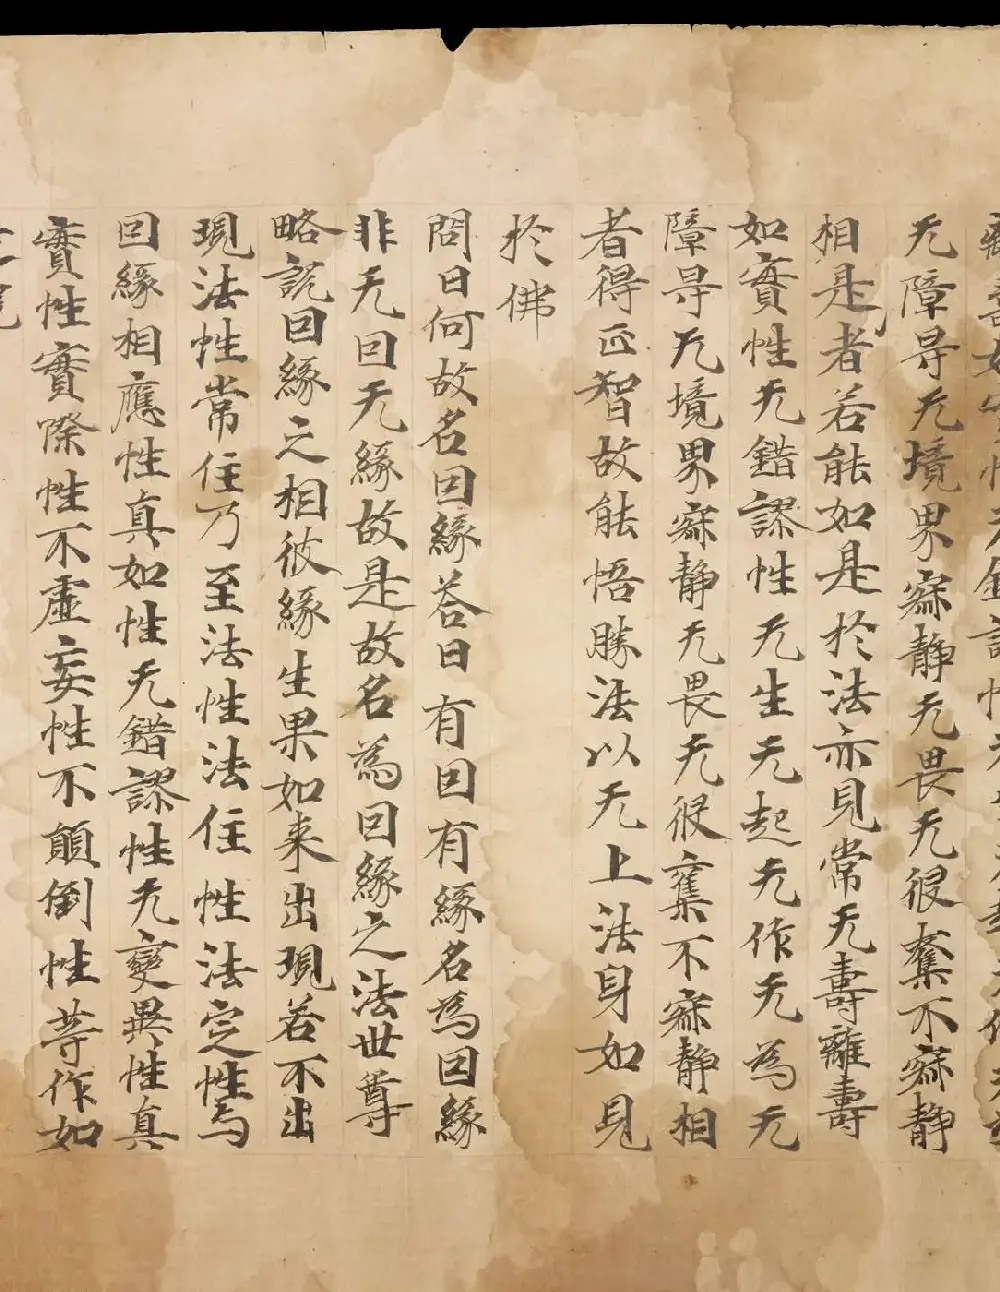 无障㝵无境界寂静无畏无侵奪不寂静
相是者若能如是於法亦見常无壽離壽
如實性无錯謬性无生无起无作无為无
障㝵无境界寂静无畏无侵奪不寂静相
者得正智故能悟勝法以无上法身如見
於佛
問曰何故名因緣荅曰有因有緣名為因緣
非无因无緣故是故名為因緣之法世尊
略說因緣之相彼緣生果如来出現若不出
現法性常住乃至法性法住性法定性与
因緣相應性真如性无錯謬性无變異性真
實性實際性不虛妄性不顛倒性等作如